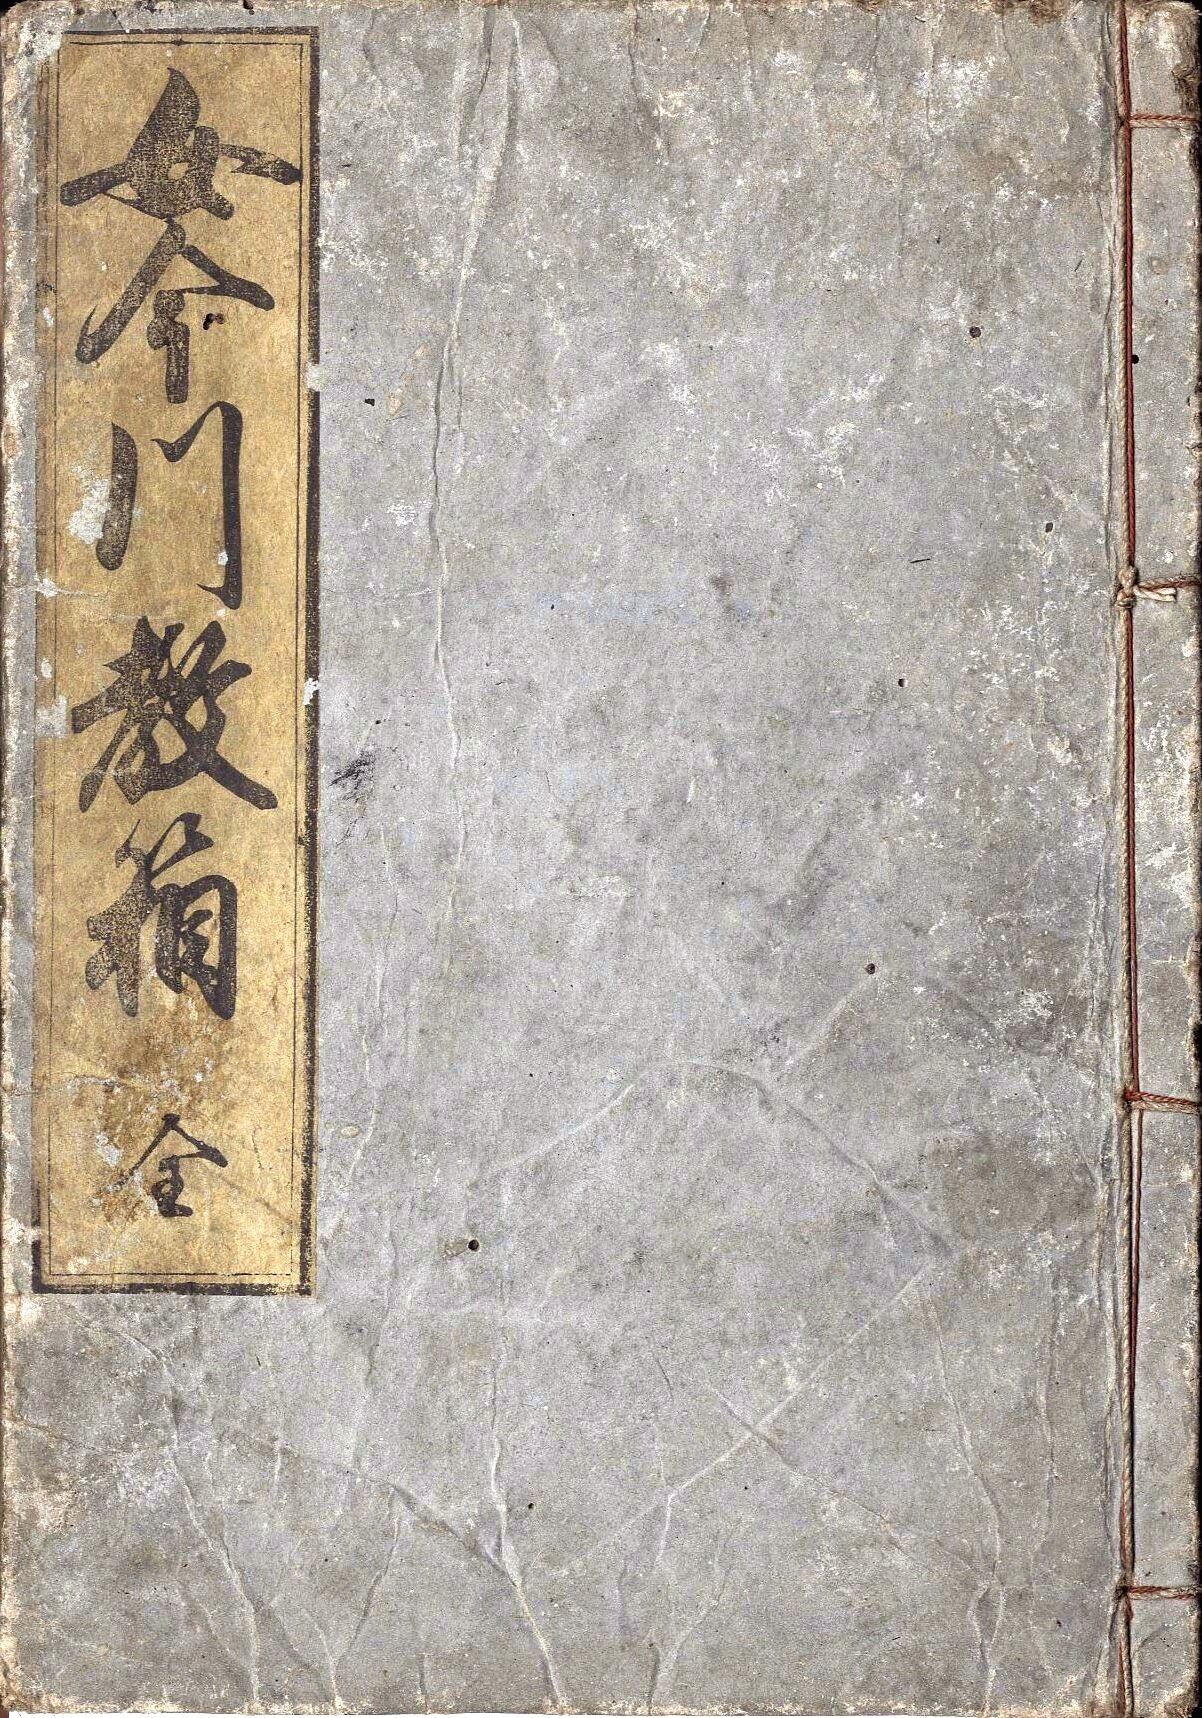 女今川教箱 全